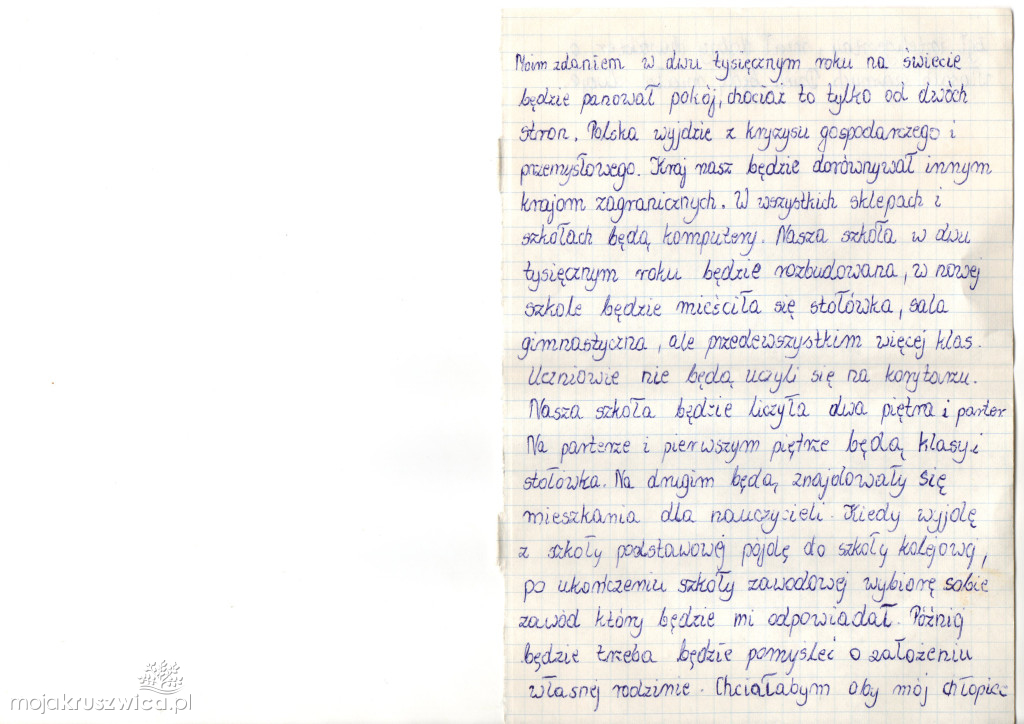 Moim zdaniem w dwu tysięcznym roku na świecie
będzie panował pokój, chociaż to tylko od dwóch
stron. Polska wyjdzie z kryzysu gospodarczego i
przemysłowego. Kraj nasz będzie dorównywał innym
krajom zagranicznych. W wszystkich sklepach i
szkołach będą komputery. Nasza szkoła w dwu
tysięcznym roku będzie rozbudowana, w nowej
szkole będzie mieściła się stołówka, sala
gimnastyczna, ale przedewszystkim więcej klas.
Uczniowie nie będą uczyli się na korytarzu.
Nasza szkoła będzie liczyła dwa piętra i parter
Na parterze i pierwszym piętrze będą klasy i
stołówka. Na drugim będą znajdowały się
mieszkania dla nauczycieli. Kiedy wyjdę
z szkoły podstawowej pójdę do szkoły kolejowej,
po ukończeniu szkoły zawodowej wybiorę sobie
zawód który będzie mi odpowiadał. Później
będzie trzeba będzie pomyśleć o założeniu
własnej rodzinie. Chciałabym aby mój chłopiec
mojakruszwica.pl